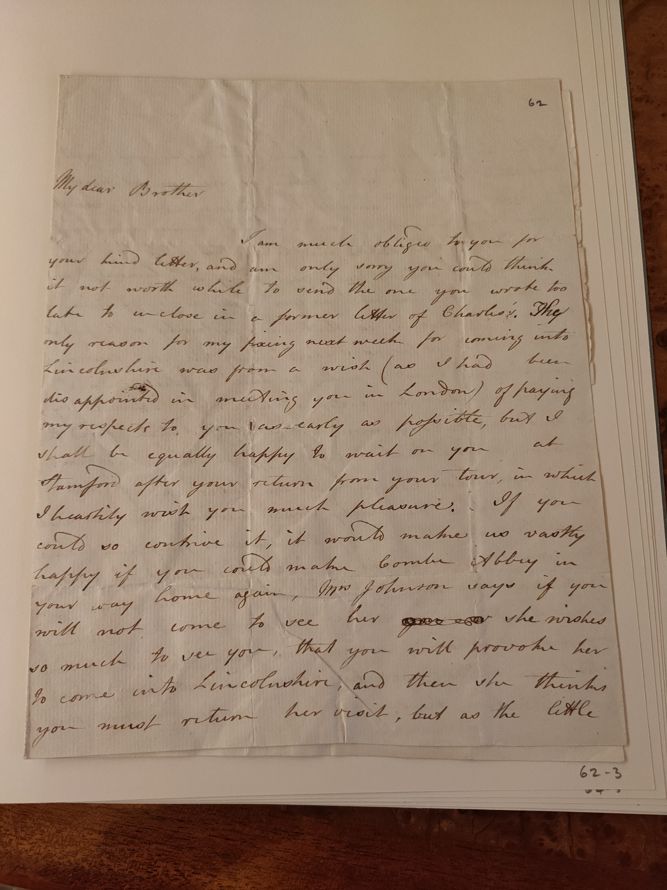 62
My dear Brother
I am much obliged to you for
your kind letter, and am only sorry you could think
it not worth while to send the one you wrote too
late to inclose in a former letter of Charles's. They
only reason for my fixing next week for coming into
Lincolnshire was from a wish (as I had been
disappointed in meeting you in London) of paying
my respects to you as early as possible, but I
shall be equally happy to wait on you at
Stamford after your return from your tour, in which
I heartily wish you much pleasure. If you
could so contrive it, it would make us vastly
happy if you could make Combe Abbey in
your way home again, Mrs Johnson says if you
will not come to see her she wishes
so much to see you, that you will provoke her
to come into Lincolnshire, and then she thinks
you must return her visit, but as the little
62-3